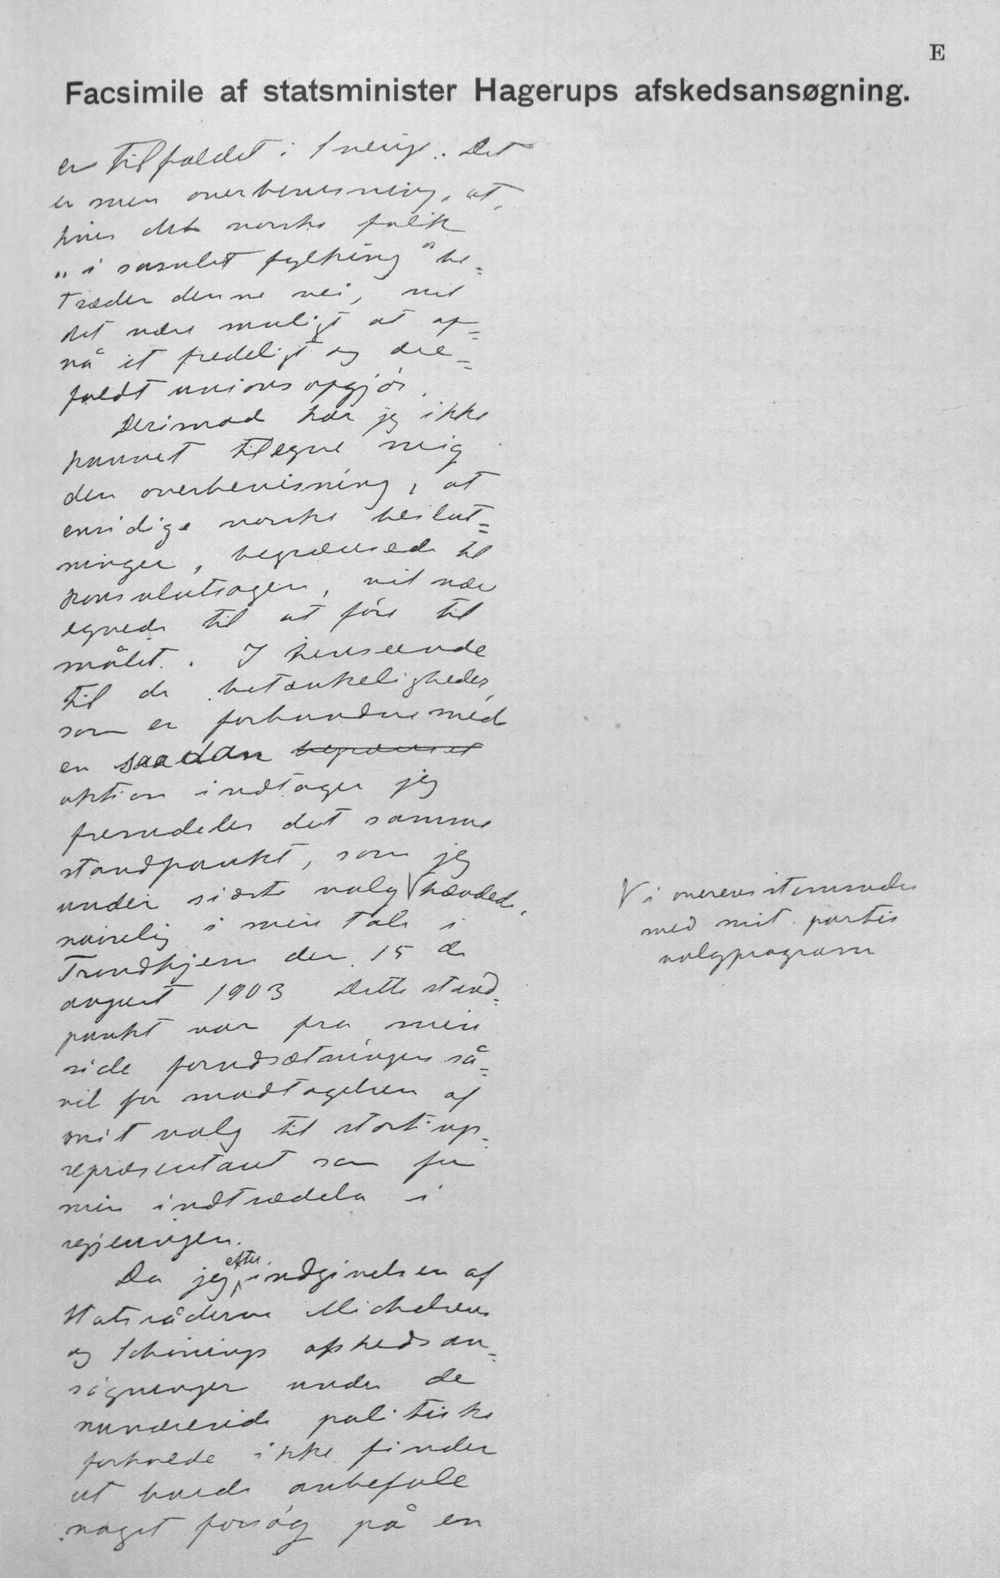 E
Facsimile af statsminister Hagerups afskedsansøgning.
er tilfældet i Sverige. Det
er min overbevisning, at,
hvis det norske folk
„i samlet fylking" be=
træder denne vei, vil
det være muligt at op=
nå et fredeligt og ære=
fuldt unionsopgjør.
Derimod har jeg ikke
kunnet tilegne mig
den overbevisning, at
ensidige norske beslut=
ninger, begrænsede til
konsulatsagen, vil være
egnede til at føre til
målet. I henseende
til de betænkeligheder,
som er forbundne med
en saadan begrænset
aktion indtager jeg
fremdeles det samme
standpunkt, som jeg
under sidste valg √ hævdede,
navnlig i min tale i
Trondhjem den 15 de
august 1903 Dette stand=
punkt var fra min
side forudsætningen så=
vel for modtagelsen af
mit valg til stortings=
repræsentant som for
min indtræden i
regjeringen.
Da jeg efter indgivelsen af
statsråderne Michelsens
og Schønings afskedsan=
søgninger under de
nuværende politiske
forholde ikke finder
at burde anbefale
noget forsøg på en
√ i overensstemmelse
med mit partis
valgprogram